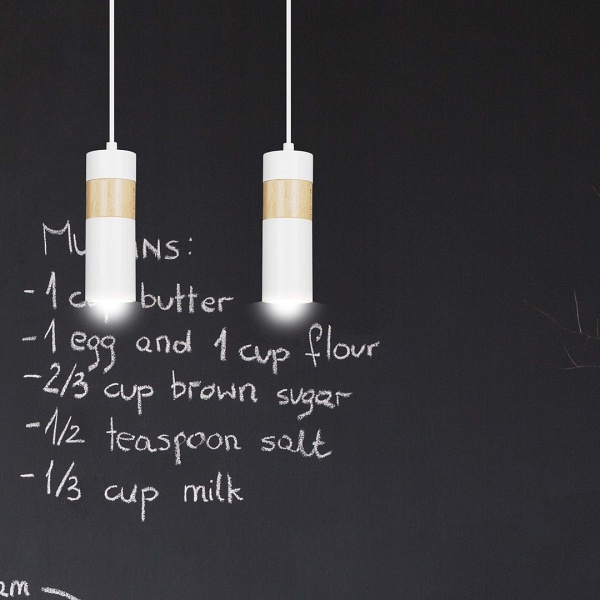 -1 butter
-1 egg and 1 cup flour
-2/3 cup brown sugar
-1/2 teaspoon salt
-1/3 cup milk